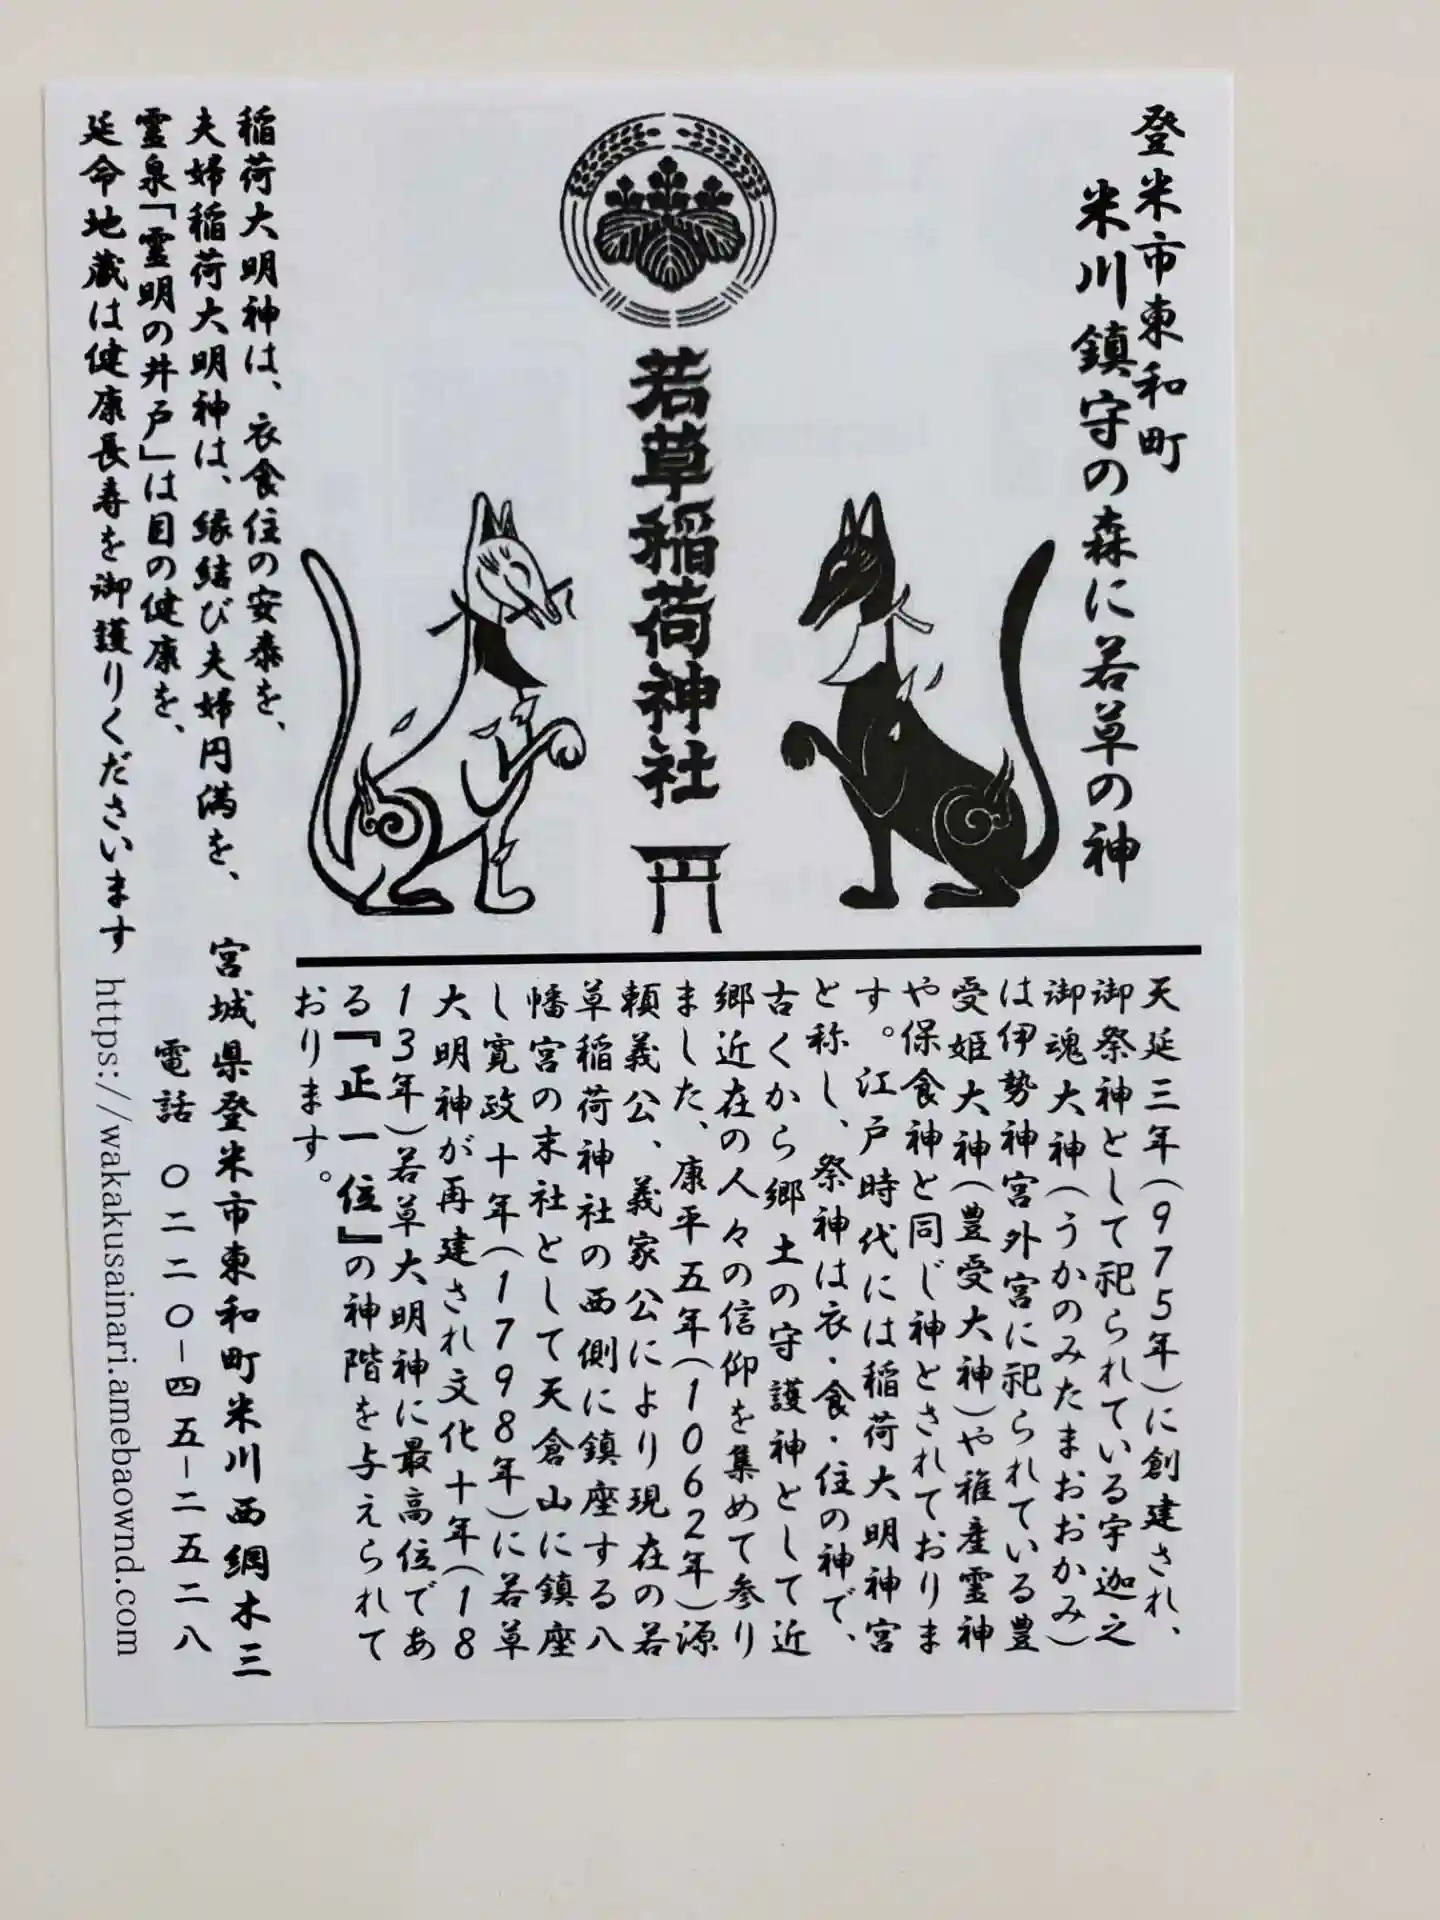 登米市東和町
米川鎮守の森に若草の神
若草稲荷神社
稲荷大明神は、衣食住の安泰を、
夫婦稲荷大明神は、縁結び夫婦円満を、
霊泉「霊明の井戸」は目の健康を、
延命地蔵は健康長寿を御護りくださいます
天延三年(975年)に創建され、
御祭神として祀られている宇迦之
御魂大神(うかのみたまおおかみ)
は伊勢神宮外宮に祀られている豊
受姫大神(豊受大神)や稚産霊神
や保食神と同じ神とされておりま
す。江戸時代には稲荷大明神宮
と称し、祭神は衣・食・住の神で、
古くから郷土の守護神として近
郷近在の人々の信仰を集めて参り
ました、康平五年(1062年)源
頼義公、義家公により現在の若
草稲荷神社の西側に鎮座する八
幡宮の末社として天倉山に鎮座
し寛政十年(1798年)に若草
大明神が再建され文化十年(18
13年)若草大明神に最高位であ
る『正一位』の神階を与えられて
おります。
宮城県登米市東和町米川西綱木三
電話 〇二二〇-四五-二五二八
https://wakakusainari.amebaownd.com